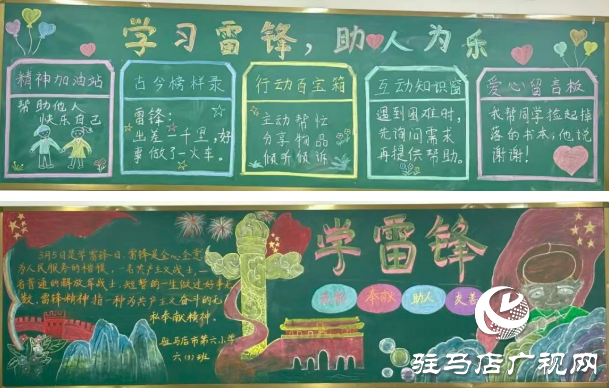 学习雷锋，助人为乐
精神加油站
帮助他人
快乐自己
古今榜样录
雷锋：
出差一千里，好
事做了一火车。
行动百宝箱
主动帮忙
分享物品
倾听倾诉
互动知识窗
遇到困难时，
先询问需求
再提供帮助。
爱心留言板
我帮同学捡起掉
落的书本，他说
谢谢！
学雷锋
3月5日是学雷锋日，雷锋是全心全意
为人民服务的楷模，一名共产主义战士，一
名普通的解放军战士，短暂的一生做过好事无
数，雷锋精神指一种为共产主义奋斗的无
私奉献精神。
驻马店市第六小学
奉献
助人
友善
驻马店广视网